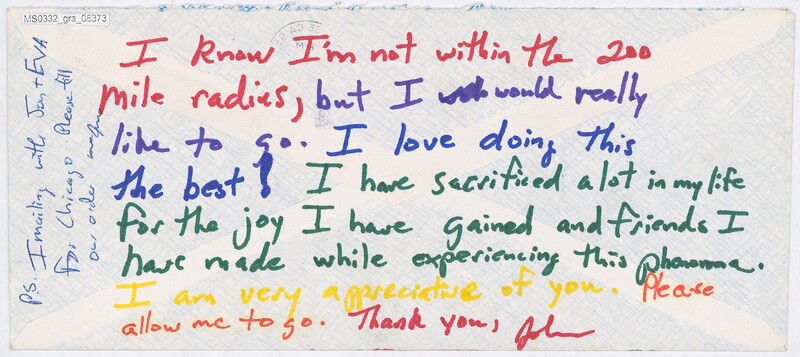 MS0332_gra_06373
I know I'm not within the 200
mile radius, but I would really
like to go. I love doing this
the best! I have sacrificed a lot in my life
for the joy I have gained and friends I
have made while experiencing this phenomma.
I am very appreciative of you. Please
allow me to go. Thank you, John
PS. I mailing with Jon + EVA
For Chicago. Please fill
our order